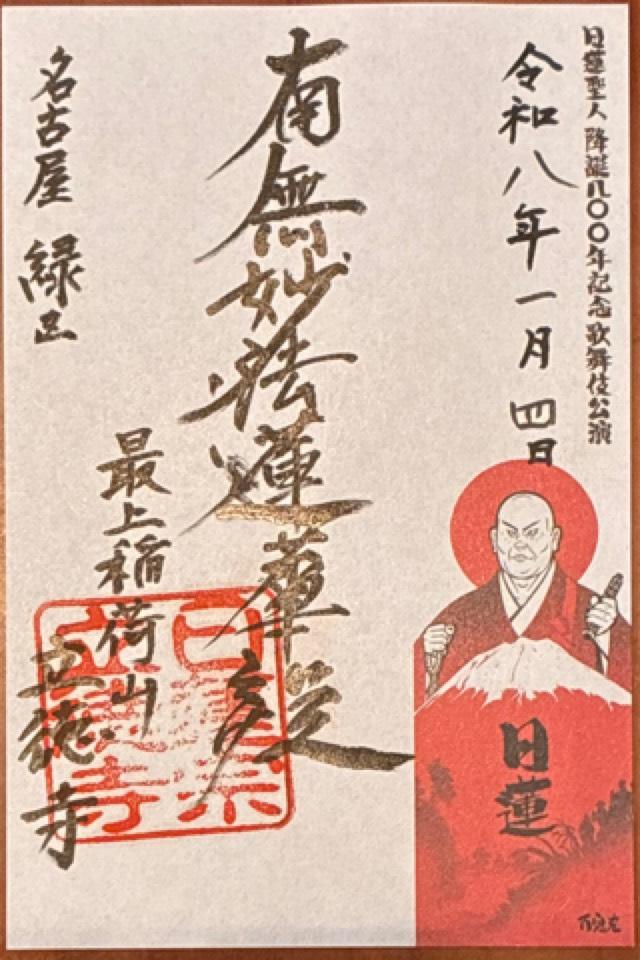 日蓮聖人 降誕八〇〇年記念歌舞伎公演
令和八年一月四日
南無妙法蓮華経
最上稲荷山
立徳寺
名古屋 緑区
日蓮宗
立徳寺
日蓮